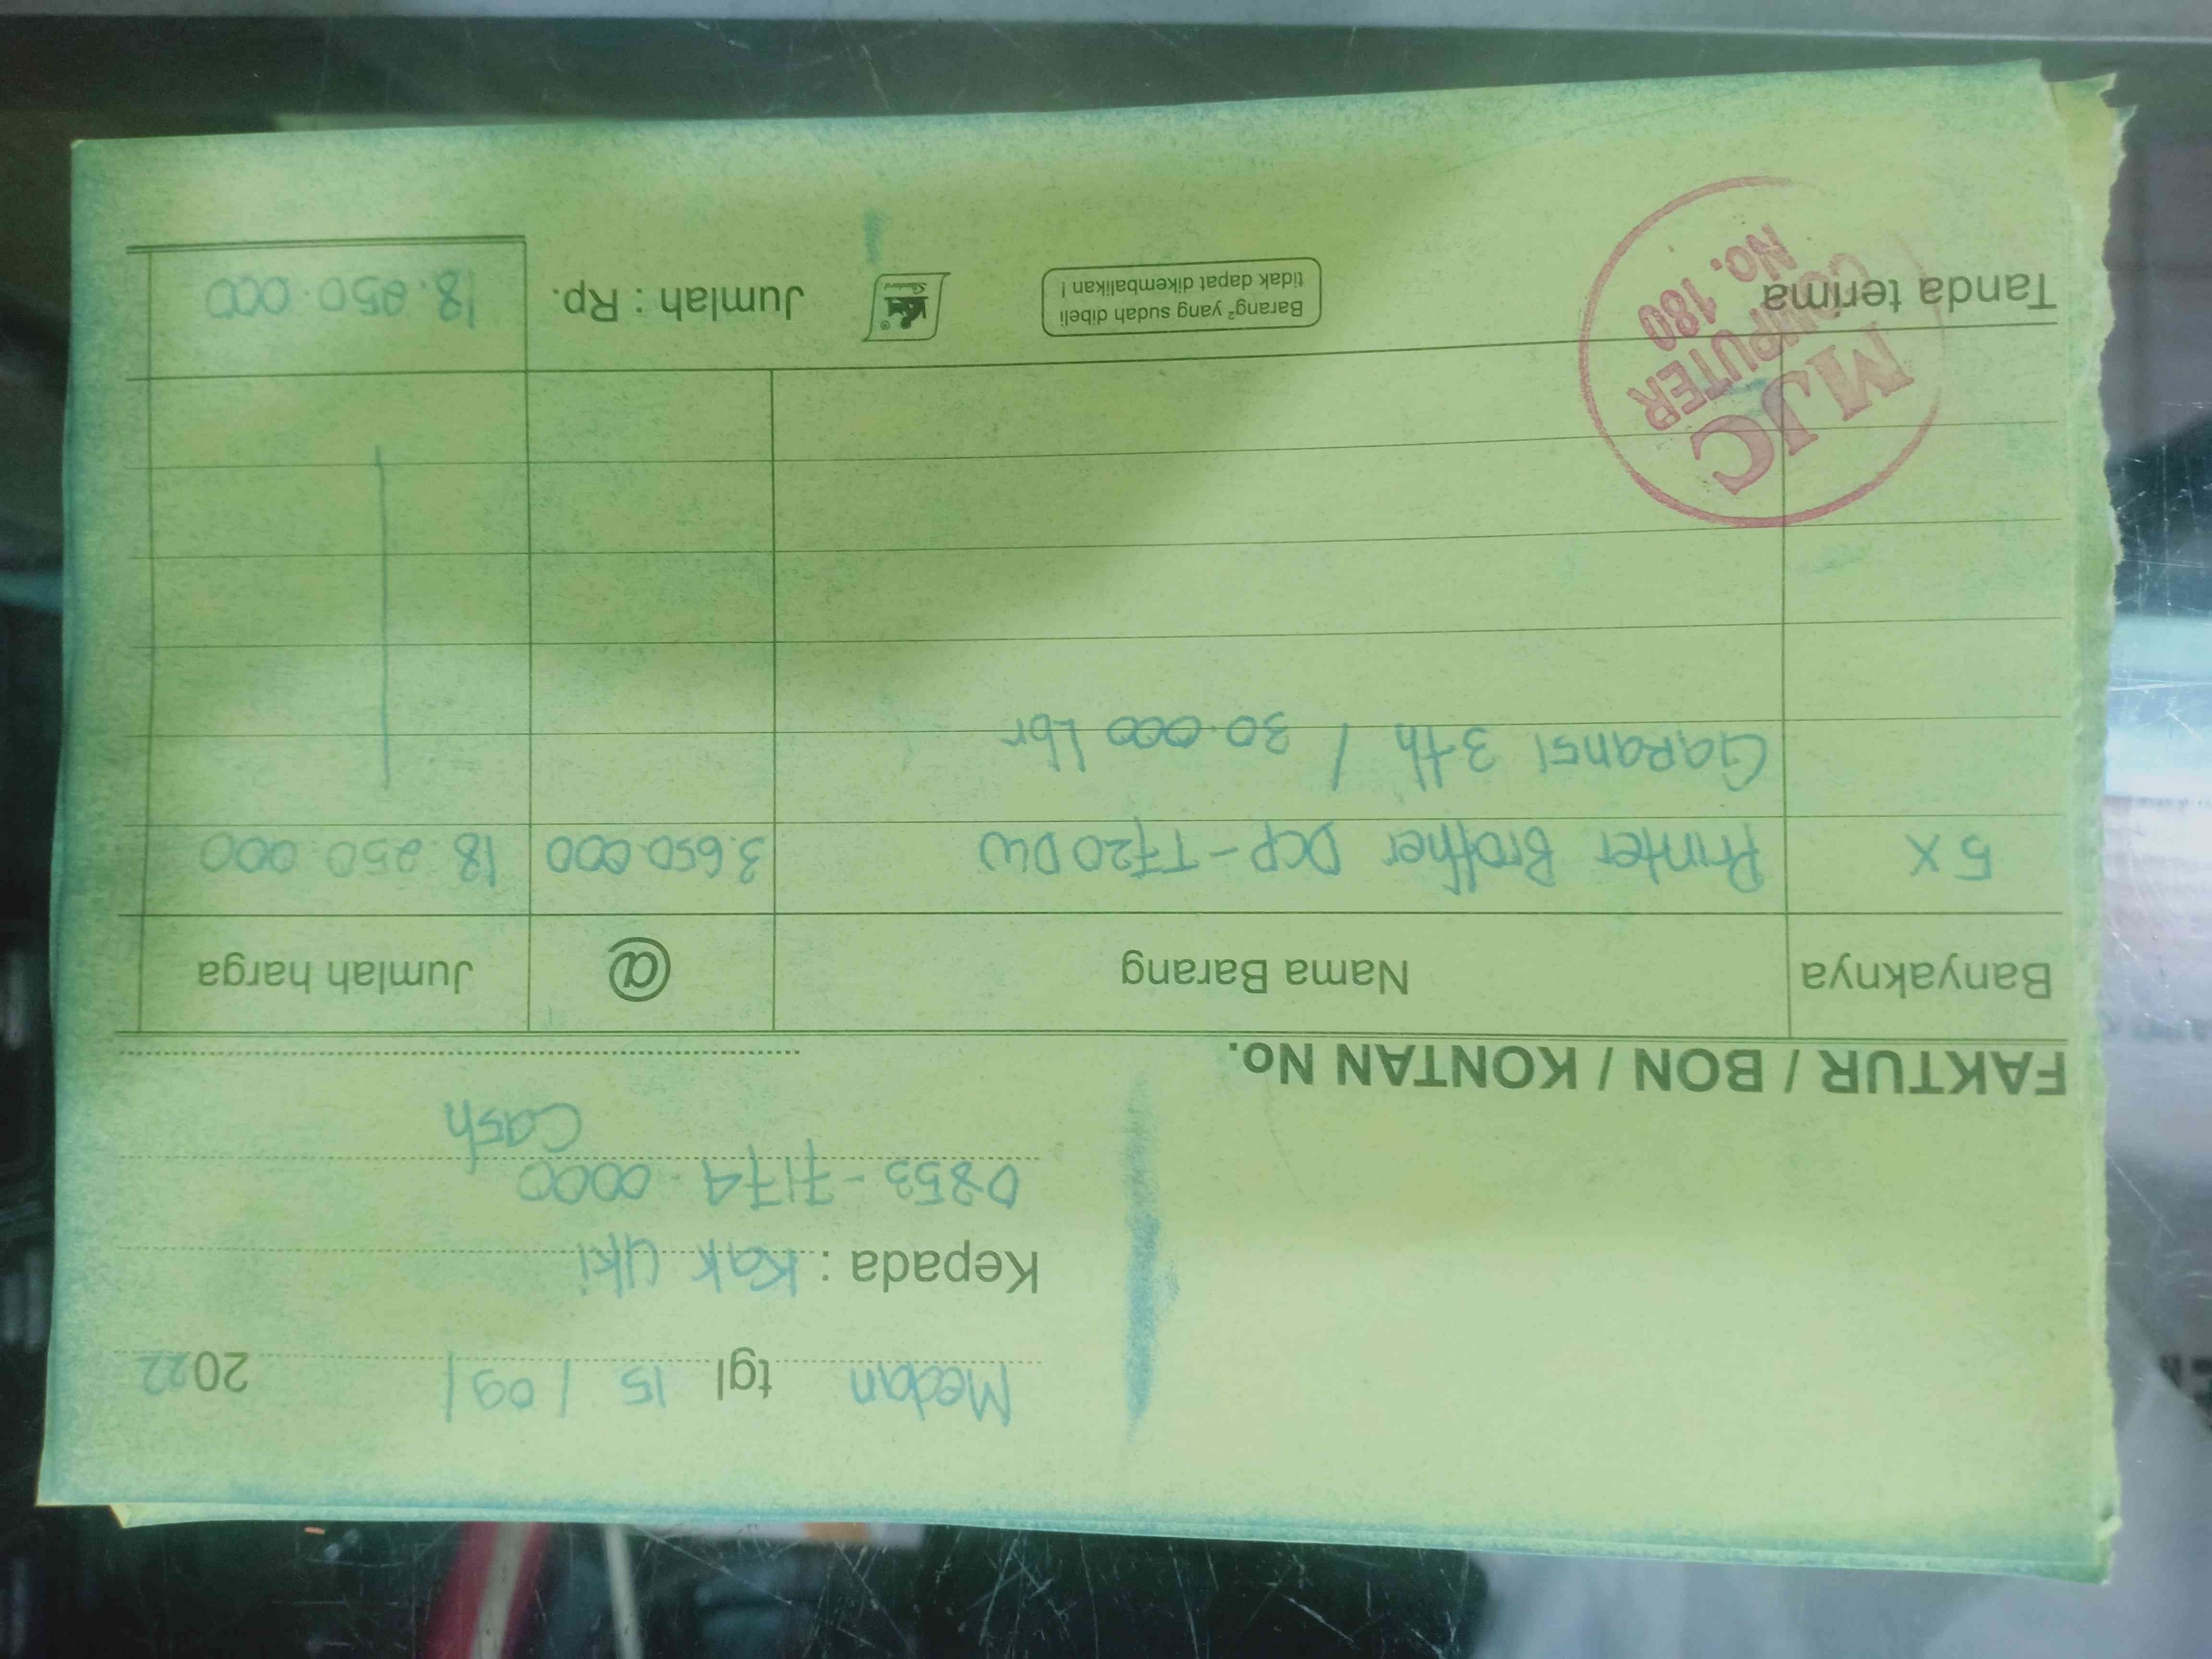 Medan tgl 15 / 09 / 2022
Kepada : Kak Uki
0853-7174-0000
Cash
FAKTUR / BON / KONTAN No.
Banyaknya Nama Barang @ Jumlah harga
5 X Printer Brother DCP-T720DW 3.650.000 18.250.000
Garansi 3 th / 30.000 Lbr
Tanda terima
Barang² yang sudah dibeli
tidak dapat dikembalikan !
Jumlah : Rp. 18.250.000
MJC
COMPUTER
No. 180